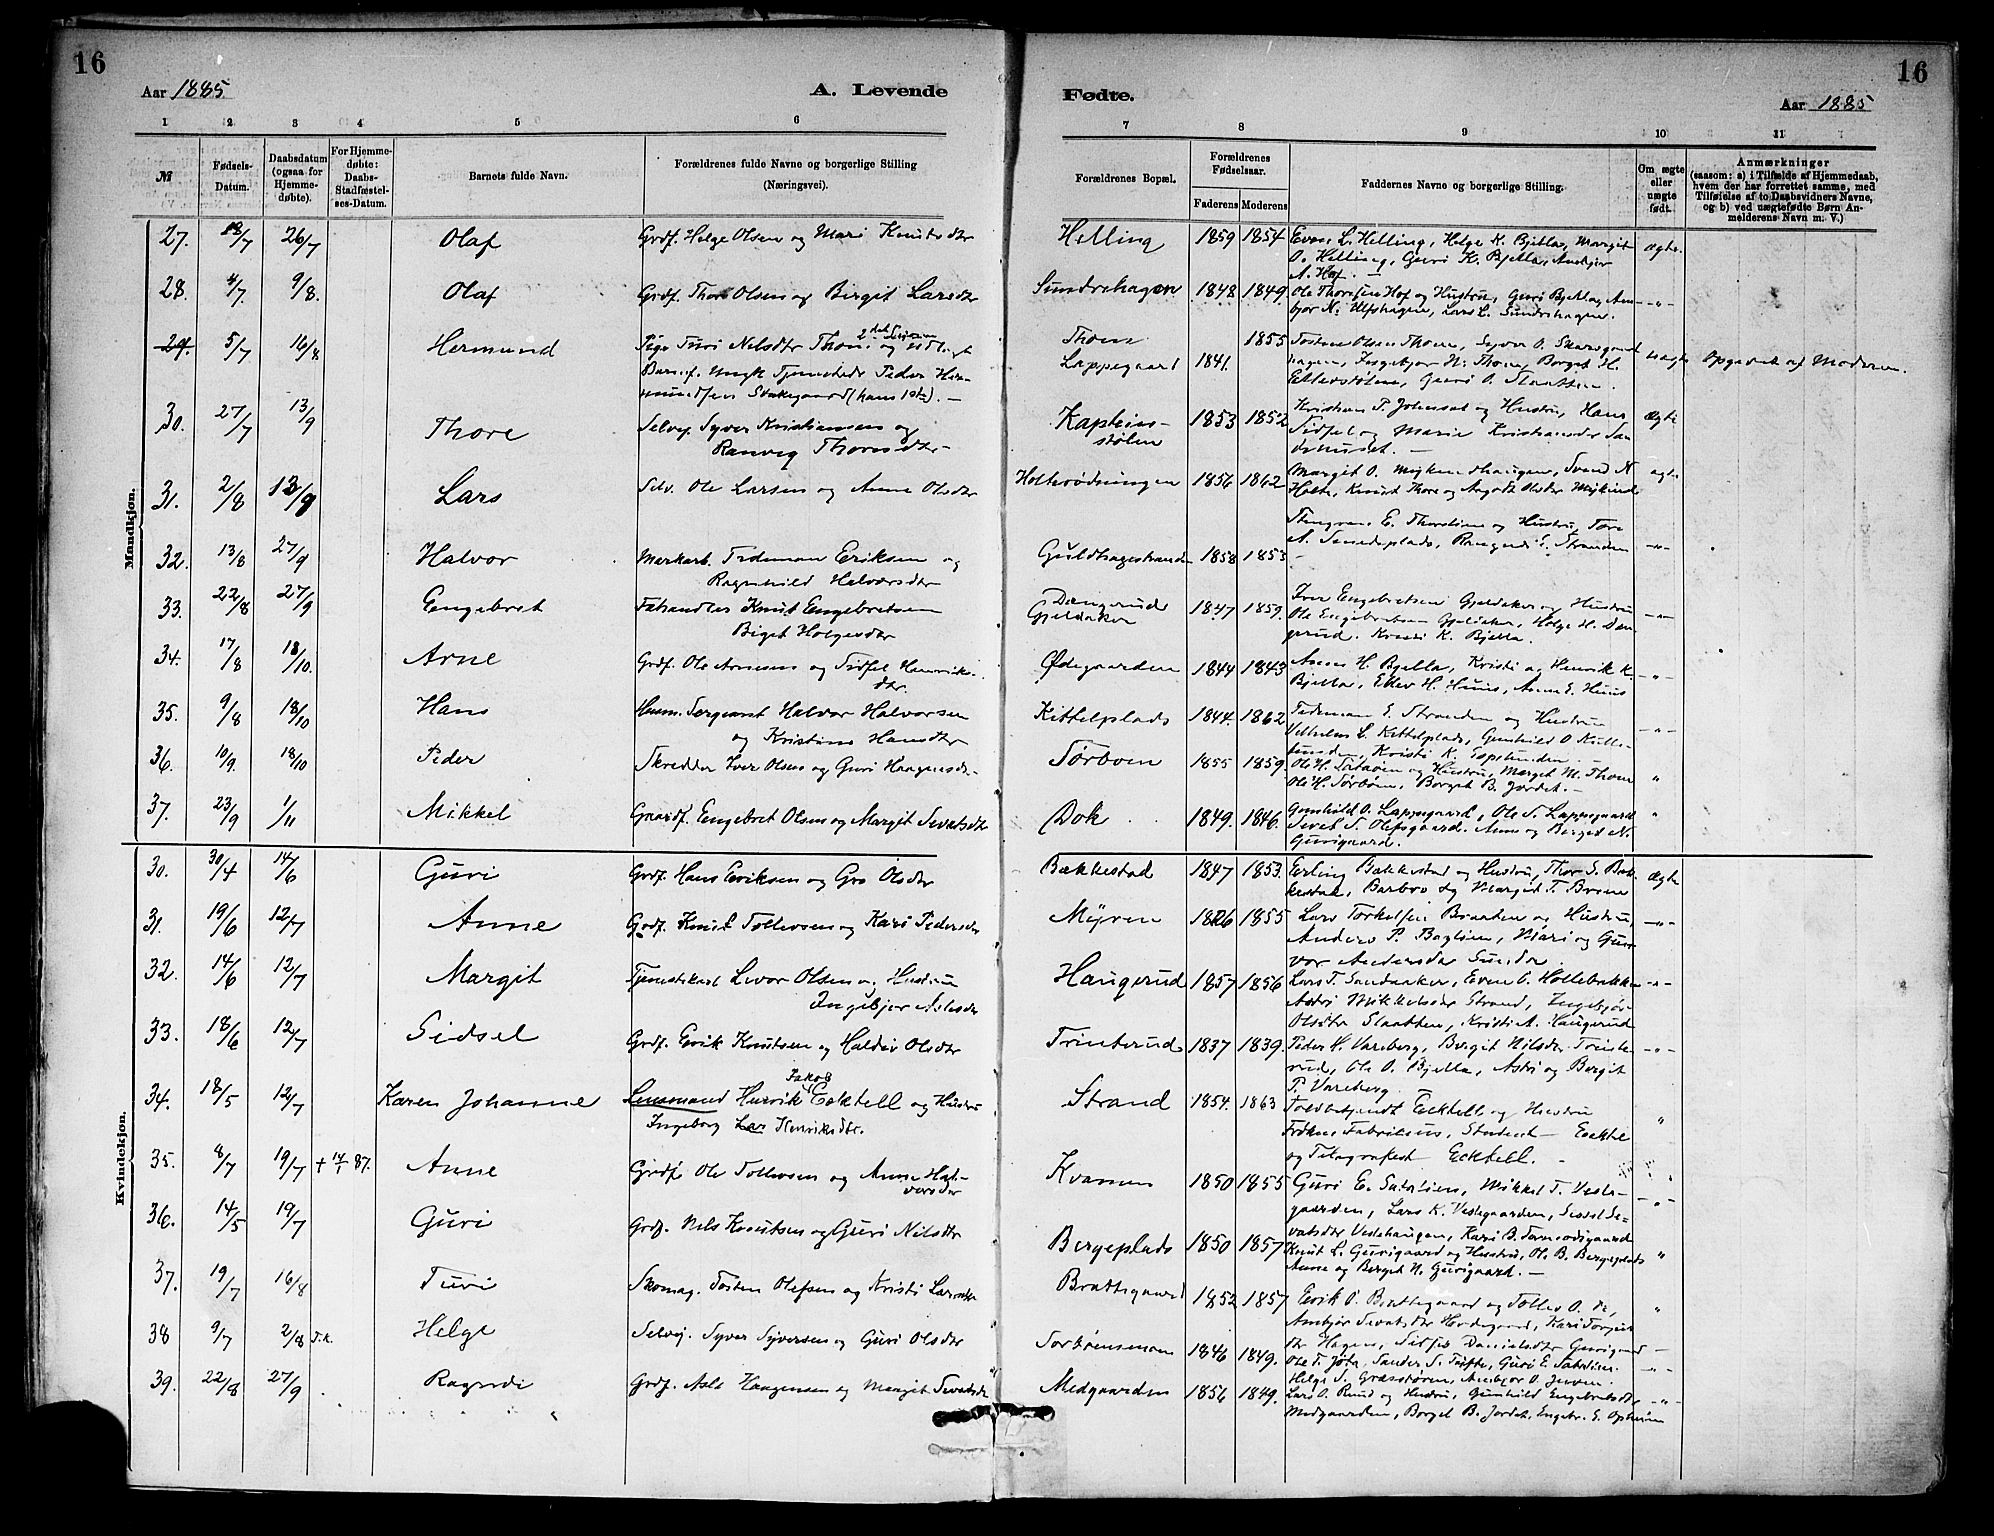 16
Aar 1885.
A. Levende
Fødte.
16
Aar 1885
1 2 3 4 5 6
7 8 9 10 11
№
Fødsels-
Datum.
Daabsdatum
(ogsaa for
Hjemme-
døbte).
For Hjemme-
døbte:
Daabs-
Stadfæstel-
ses-Datum.
Barnets fulde Navn.
Forældrenes fulde Navne og borgerlige Stilling
(Næringsvei).
Forældrenes Bopæl.
Forældrenes
Fødselsaar.
Faderens Moderens
Faddernes Navne og borgerlige Stilling.
Om ægte
eller
uægte
født.
Anmærkninger
(saasom: a) i Tilfælde af Hjemmedaab,
hvem der har forrettet samme, med
Tilføielse af to Daabsvidners Navne,
og b) ved uægtefødte Børn An-
melderens Navn m. V.)
Mandkjøn.
27. 26/7 Olaf Grdf. Helge Olsen og Mari Knutsdtr Helling 1859 1854 Even L. Helling, Helge K. Bjella, Margit ægte.
O. Helling, Guri K. Bjella,
A. Hof. —
28. 4/7 9/8. Olaf Grdf. Thore Olsen og Birgit Larsdtr Sundrehagen 1848 1849 Ole Thoresen Hof og Hustru, Guri Bjella, Am- —"—
bjør N. Ulfshagen, Lars L. Sundrehagen.
29. 5/7 16/8 Hermund Pige Turi Nilsdtr Thon og Thon 1855 Tosten Olsen Thoen, Syver O. Skarsgaard
Barnef. Ungk. Tjenestedr. Peder Her- Lappegaard 1841. Ingebjør N. Thoen, Borget H. uægte Opgivet af Moderen.
mundsen (hans 1ste). — Guri O. Slaatten.
30. 27/7 13/9 Thore Selvej. Syver Kristiansen og Kapteins- 1853 1852 Kristian P. Johnsen og Hustru, Hans Ægte
Ranveig Thoresdtr — stølen Sidsel og Marie Kristiansdtr
31. 2/8 13/9 Lars Selv. Ole Larsen og Anne Olsdtr 1856 1862 Margit O. Svend N. ægte
Holte, Knut Thore og Olsdtr
32. 13/8 27/9 Halvor Markarb. Tideman Eriksen og Guldhagestranden 1858 1853 E. Thorstein og Hustru, Tore
Ragnhild Halvorsdtr E. Stranden —"—
33. 22/8 27/9 Engebret Fehandler Knut Engebretsen Dængerud 1847 1859. Iver Engebretsen Gjeldaker og Hustru —"—
Birget Helgesdtr Gjeldaker Ole Engebretsen Gjeldaker, Helge H. Dæn-
gerud. K. Bjella.
34. 17/8 18/10. Arne Grdf. Ole Arnesen og Sidsel Henriks- Ødegaarden 1844 1843 H. Bjella, Kristi og Henrik K. —"—
dtr. Bjella, Ellev H. Huus, Anne E. Huus
35. 9/8 18/10 Hans Husm. Sergeant Halvor Halvorsen Kittelplads 1844. 1862 Tideman E. Stranden og Hustru —"—
og Kristine Hansdtr Vilhelm L. Kittelplads, Gunhild O.
36. 10/9. 18/10 Peder Skredder Iver Olsen og Guri Haagensdtr Tørboen 1855 1859. Kristi K.
Ole H. Tørbøen og Hustru, Margit M. Thoen "
Ole H. Tørbøen, Borget B. Jordet. —
37. 23/9 1/11 Mikkel Gaardf. Engebret Olsen og Margit Sevatsdtr Dok 1849. 1846. Gunhild O. Lappegaard, Ole S. Lappegaard "
Sevat S. Olefsgaard. Anne og Berget N.
Gurigaard.
Kvindekjøn.
30. 30/4 14/6 Guri Grdf. Hans Eriksen og Gro Olsdtr Bækkestad 1847 1853. Erling Bækkestad og Hustru, Thor S. Bæk- Ægte
kestad, Barbro og Margit T.
31. 19/6 12/7 Anne Grdf. Knut Tollevsen og Kari Pedersdtr Myren 1826 1855 Lars Torkelsen Braaten og Hustru, —"—
Anders P. Mari og Gun-
vor Andersdtr Sundre
32. 14/6 12/7 Margit Tjenestekarl Levor Olsen og Hustru Haugerud 1857 1856 Lars T. Sandaaker, Even O. Hollebakken —"—
Ingebjør Aslesdtr Astri Mikkelsdtr Strand, Ingebjør
Olsdtr Slaatten, Kristi A. Haugerud
33. 18/6 12/7 Sidsel Grdf. Erik Knutsen og Haldis Olsdtr Trinterud 1837 1839. Peder H. Vareberg, Birgit Nilsdtr Trinte- —"—
rud, Ole O. Bjella, Astri og Bergit
P. Vareberg
34. 18/5 12/7 Karen Johanne Lensmand Henrik Jakob Ecktell og Hustru Strand 1854. 1863 Eecktell og Hustru
Ingeborg Henriksdtr. Frøken Fabritius, Student "
og Telegrafist Ecktell. —
35. 8/7 19/7 + 14/1 87. Anne Grdf. Ole Tollevsen og Anne Hal- Kvammen 1850 1855 Guri E. Mikkel T. Veste- —"—
vorsdtr gaarden, Lars K. Vestegaarden, Sidsel Se-
36. 14/5 19/7 Guri Grdf. Nels Knutsen og Guri Nilsdtr Bergeplads 1850 1857 vatsdtr Vestehaugen, Kari B.
Knut L. Gurigaard og Hustru, Ole B. Bergeplads "
Anne og Berget N. Gurigaard. —
37. 19/7 16/8 Turi Skomag. Tosten Olefsen og Kristi Larsdtr Brattegaard 1852 1857 Erik O. Brattegaard og Tollev O. "
Ambjør Sevatsdtr
38 9/7 2/8 Helge Selvej. Syver Syversen og Guri Olsdtr 1846 1849. Danielsdtr Gurigaard —
Ole T. Sander S. Tufte, Guri E.
39. 22/8 27/9 Ragndi Grdf. Asle Haagensen og Margit Sevatsdtr Medgaarden 1856 1849. Helge S. Ambjør O.
Lars O. Ruud og Hustru, Gunhild Engebretsdtr —"—
Medgaarden, Borget B. Jordet, Engebr. E. Opheim